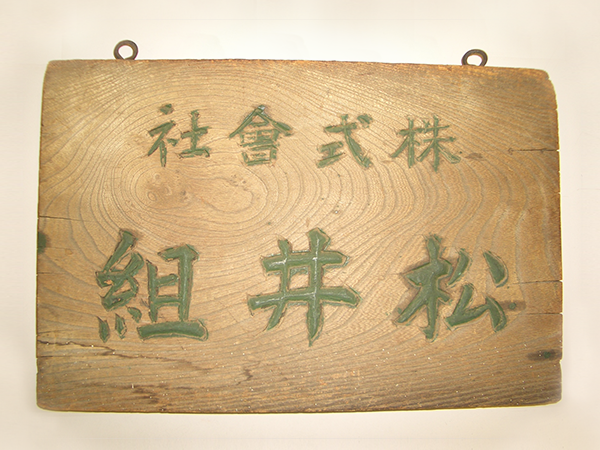 株式會社
松井組